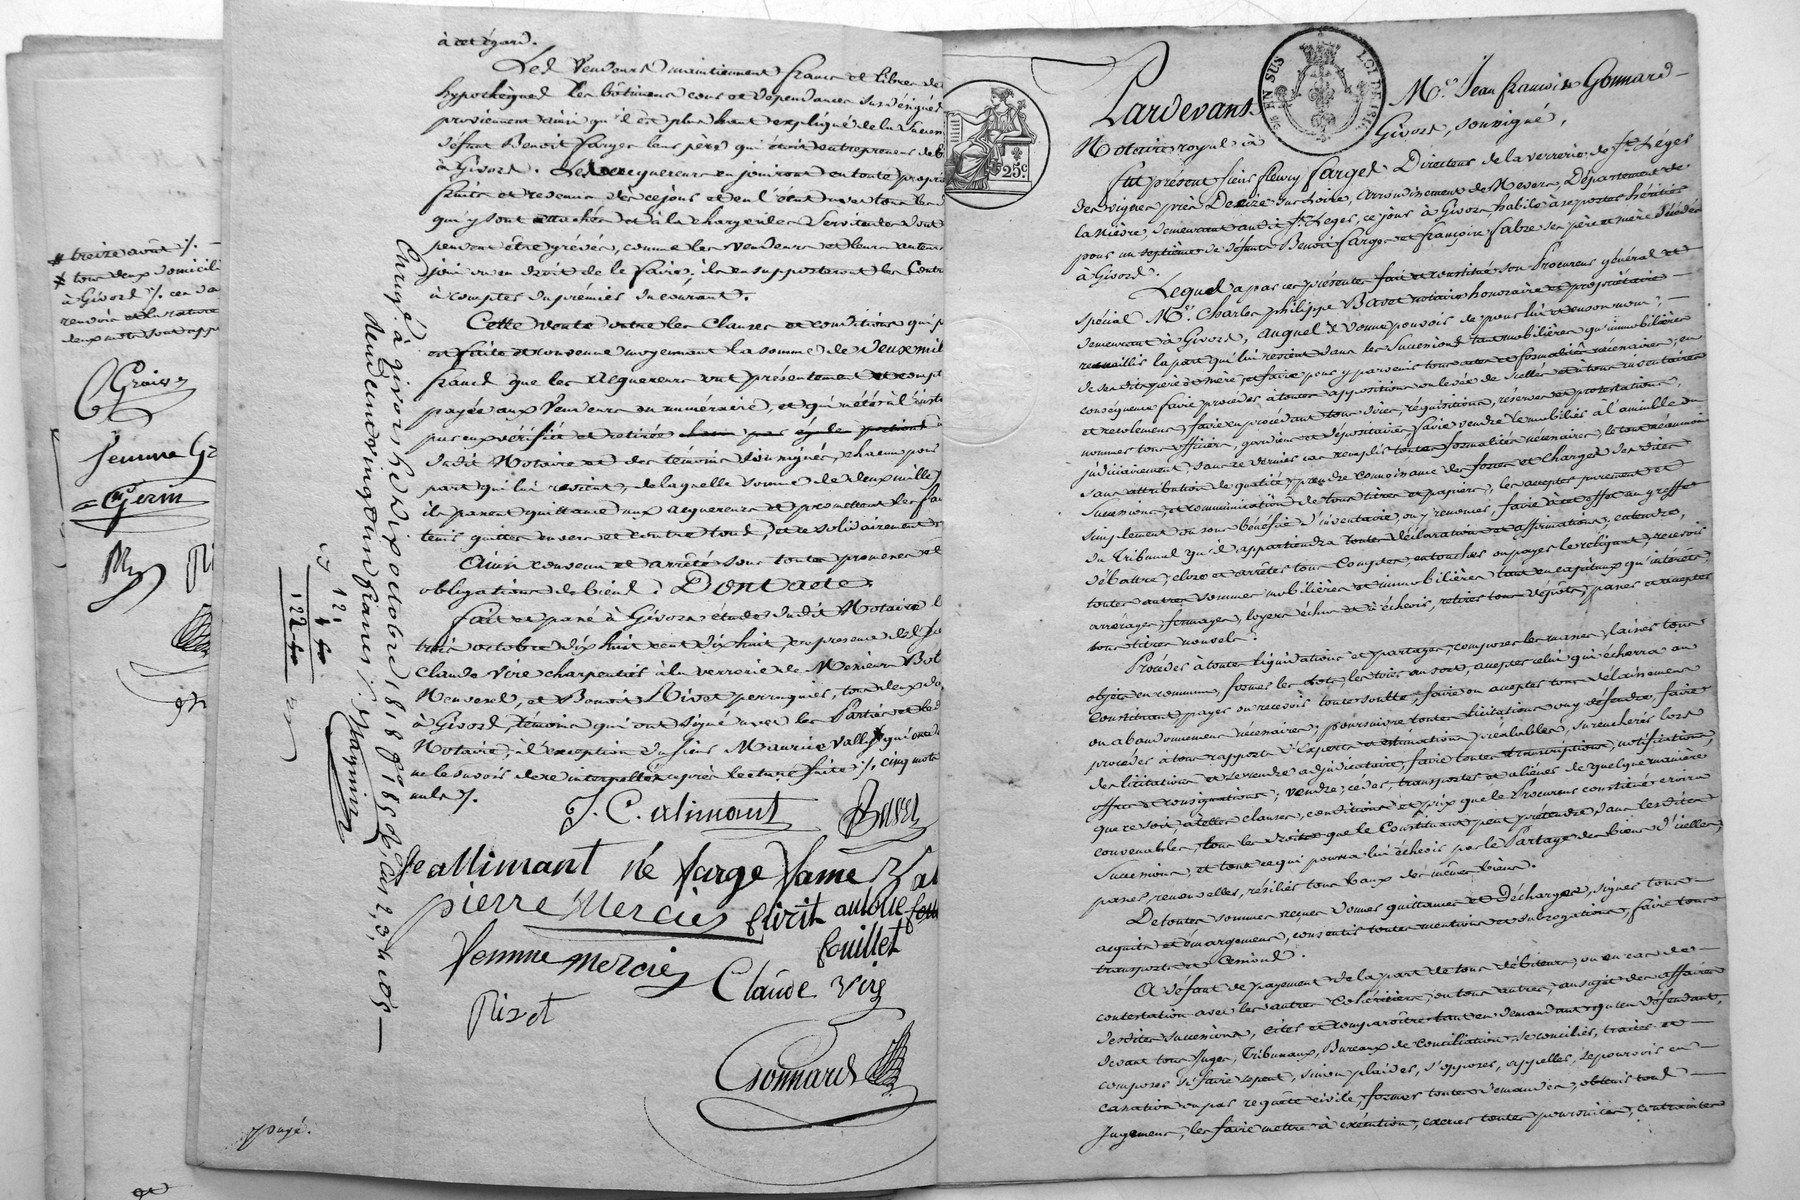 à cet égard.
Les Vendeurs maintiennent francs et libres de
hypothèques les bâtimens cour et dépendances sus désignés
proviennent ainsi qu'il est plus haut expliqué de la
défunt Benoit farges leur père qui était entrepreneur de
à Givors. Les acquereurs en jouiront en toute
fruits et revenus dès ce jour et en l'état avec tous les
qui y sont attachés et à la charge des Servitudes dont
peuvent être grévés, comme les vendeurs et leurs auteurs
joui ou eu droit de le faire; ils en supporteront les
à compter du prémier du courant.
Cette vente outre les Clauses et conditions qui
est faite et convenue moyennant la somme de deux mil
francs que les acquereurs ont présentement et
payée aux Vendeurs en numéraire, et qui a été à l'
par eux vérifiée et retirée
dudit Notaire et des témoins soussignés, chacun pour
part qui lui revient, de laquelle somme de deux mille
ils passent quittance aux acquereurs et promettent les
tenir quittes envers et contre tous, et ce solidairement
Ainsi convenu et arrêté sous toutes promesses et
obligations de biens. Dont acte.
Fait et passé à Givors étude dudit Notaire
trois octobre dix huit cent dix huit, en presence de
Claude Vire charpentier à la verrerie de Messieurs
et Benoit Rivot perruquier, tous deux
à Givors, témoins qui ont signé avec les Parties et le
Notaire, à l'exception du sieur Maurice Vallet qui
ne le savoir de ce interpellés après lecture faite ./. cinq mots
nuls ./.
J. C. alimant
fe allimant né farge fame
pierre Mercier
femme mercier
fouillet
Claude Vire
Rivot
Gonnard
payé.
Enrgé à givors, le dix octobre 1818 fo 185 Ro Cas 2, 3, 4 et 5
deux cent vingt un francs ./.
12.
treize août ./.
tous deux domicil
à Givors ./. ces d
renvois et la rature
deux mots sont app
Graisse
femme G
Gerin
EN SUS
LOI DE 1816
25c
Pardevant Me. Jean françois Gonnard
Notaire royal à Givors, soussigné,
fut présent sieur fleury farges Directeur de la verrerie de St. Leger
des vignes près Decize sur Loire, arrondissement de Nevers, Département de
la Nièvre, demeurant audit St. Leger, ce jour à Givors, habile à se porter héritier
pour un septième de défunts Benoit farges et françoise fabre ses père et mère décédés
à Givors.
Lequel a par ces présentes fait et constitué son Procureur général et
spécial Me. Charles philippe Bavet notaire honoraire et propriétaire
demeurant à Givors, auquel il donne pouvoir de pour lui et en son nom;
recueillir la part qui lui revient dans les Successions tant mobilières qu'immobilières
de ses dits père et mère, et faire pour y parvenir tous actes et formalités nécessaires; en
conséquence faire procéder à toutes appositions ou levées de scellés et à tous inventaires
et recolemens, faire en procédant tous dires, réquisitions, reserves et protestations,
nommer tous officiers, gardiens et dépositaires, faire vendre le mobilier à l'amiable ou
judiciairement, dans ce dernier cas remplir toutes formalités nécessaires, le tout néanmoins
sans attribution de qualité, prendre connoissance des forces et charges des dites
Successions, et communication de tous titres et papiers, les accepter purement et
simplement ou sous bénéfice d'inventaire, ou y renoncer, faire à cet effet au greffe
du Tribunal qu'il appartiendra toutes déclarations et affirmations, entendre,
débattre, clore et arrêter tous Comptes, en toucher ou payer le reliquat, recevoir
toutes autres sommes mobilières et immobilières tant en capitaux qu'intérêts,
arrérages, fermages, loyers échus et à échoir, retirer tous dépôts, passer et accepter
tous titres nouvels.
Procéder à toutes liquidations et partages, composer les masses, laisser tous
objets en commun, former les lots, les tirer au sort, accepter celui qui écherra au
Constituant, payer ou recevoir toute soulte, faire ou accepter tous délaissemens
ou abandonnemens nécessaires; poursuivre toutes licitations ou y défendre, faire
procéder à tous rapports d'Experts et estimations préalables, surenchérir lors
des licitations et se rendre adjudicataire, faire toutes transcriptions, notifications,
offres et consignations; vendre, céder, transporter et aliéner de quelque manière
que ce soit, à telles clauses, conditions et prix que le Procureur constitué croira
convenables, tous les droits que le Constituant peut prétendre dans les dites
Successions, et tout ce qui pourra lui échoir par le Partage des biens d'icelles;
passer, renouveller, résilier tous baux des mêmes biens.
De toutes sommes reçues donner quittances et décharges, signer tous
acquits et émargemens, consentir toutes mentions et subrogations, faire tous
transports et
A défaut de payement de la part de tous débiteurs, ou en cas de
contestation avec les autres Cohéritiers, ou tous autres, au sujet des affaires
desdites successions, citer et comparoître tant en demandant qu'en défendant,
devant tous Juges, Tribunaux, Bureaux de conciliation, se concilier, traiter et
composer si faire se peut, sinon plaider, s'opposer, appeller, se pourvoir en
cassation ou par requête civile, former toutes demandes, obtenir tous
Jugemens, les faire mettre à exécution, exercer toutes poursuites, contraintes